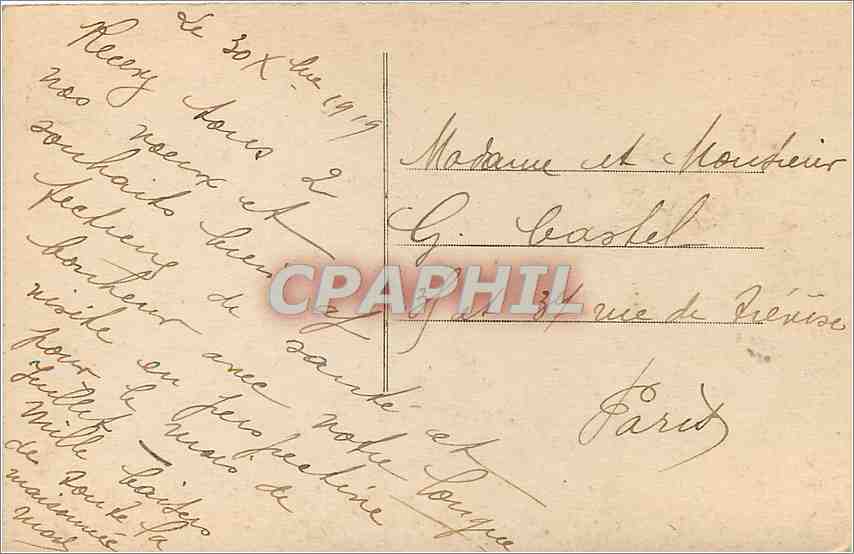 Le 30 Xbre 1919
Recevez tous 2
nos voeux et
souhaits bien af
fectueux de santé et
bonheur avec notre longue
visite en perspective
pour le mois de
Juillet –
Mille baisers
de toute la
maisonnée
Madame et Monsieur
G. Castel
35 et 37 rue de Trévise
Paris
CPAPHIL